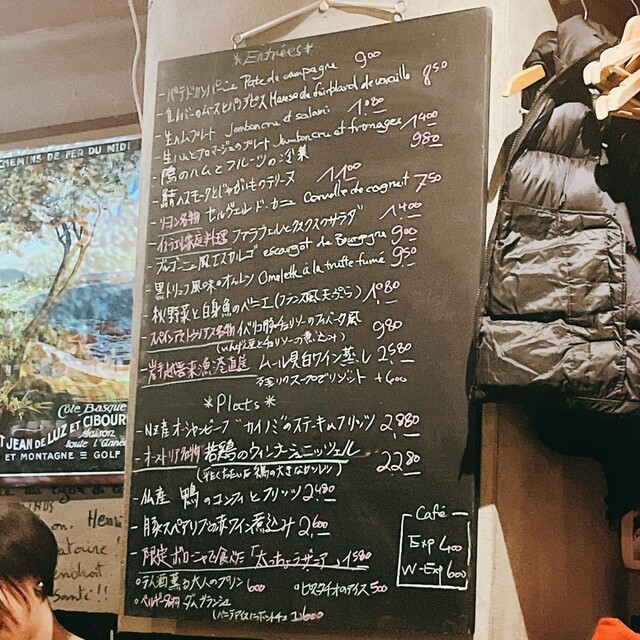 *Entrées*
- パテ・ド・カンパーニュ Pate de campagne 900
- 鶏レバーのムースとパンデピス Mousse de foie 850
- 生ハムプレート Jambon cru et salami 1080
- 生ハムとフロマージュのプレート Jambon cru et fromages 1400
- 鴨のハムとフルーツの 980
- 鯖のスモークとじゃがいものテリーヌ 1100
- リヨン名物 セルヴェル・ド・カニュ Cervelle de canut 750
- イスラエル家庭料理 ファラフェルとクスクスのサラダ 1400
- ブルゴーニュ風エスカルゴ escargot de Bourgogne 900
- 黒トリュフ風味のオムレツ Omelette à la truffe fumé 950
- 秋野菜と白身魚のベニエ(フランス風天ぷら) 1080
- スペイン アストゥリアス名物 イベリコ豚チョリソーのファバータ風 980
(いんげん豆とチョリソーの煮込み)
- 岩手越喜来漁港直送 ムール貝白ワイン蒸し 2580
残りのスープでリゾット +600
*Plats*
- NZ産オーシャンビーフ "カイノミ"のステーキ&フリッツ 2,880
- オーストリア名物 若鶏のウィンナーシュニッツェル 2280
- 仏産 鴨のコンフィとフリッツ 2480
- 豚スペアリブの赤ワイン煮込み 2,600
- 限定 ボロニャで食べた「太っちょラザニア」 1580
◦ラム酒薫る大人のプリン 600 ◦ピスタチオのアイス 500
◦ベルギー名物 ダムブランシュ
(バニラアイスにホットチョコ) 600
Café
Exp 400
W-Exp 600
CHEMINS DE FER DU MIDI
Côte Basque
ST JEAN DE LUZ ET CIBOURE
Saison toute l'année
ET MONTAGNE GOLF
Henri